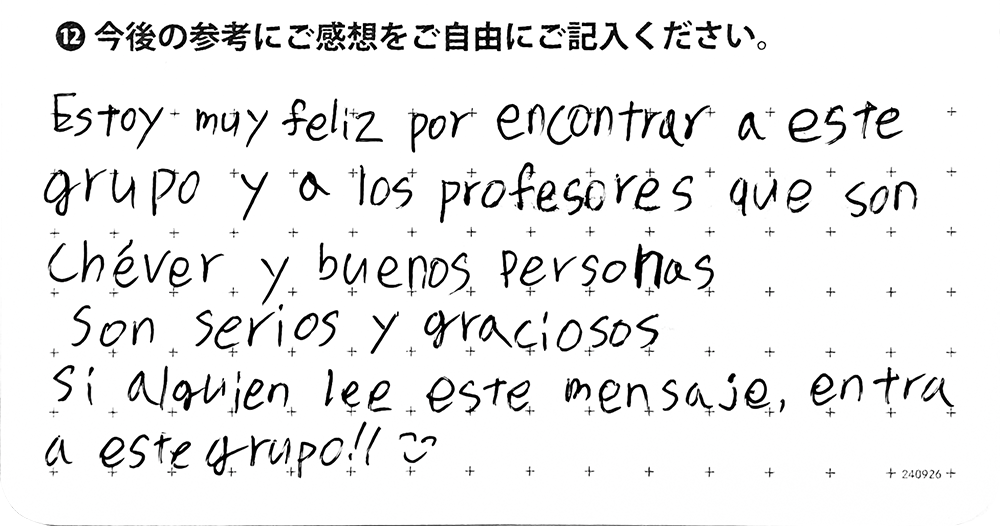 ⓬ 今後の参考にご感想をご自由にご記入ください。
Estoy muy feliz por encontrar a este
grupo y a los profesores que son
Chéver y buenos personas
Son serios y graciosos
Si alguien lee este mensaje, entra
a este grupo!! ツ
240926